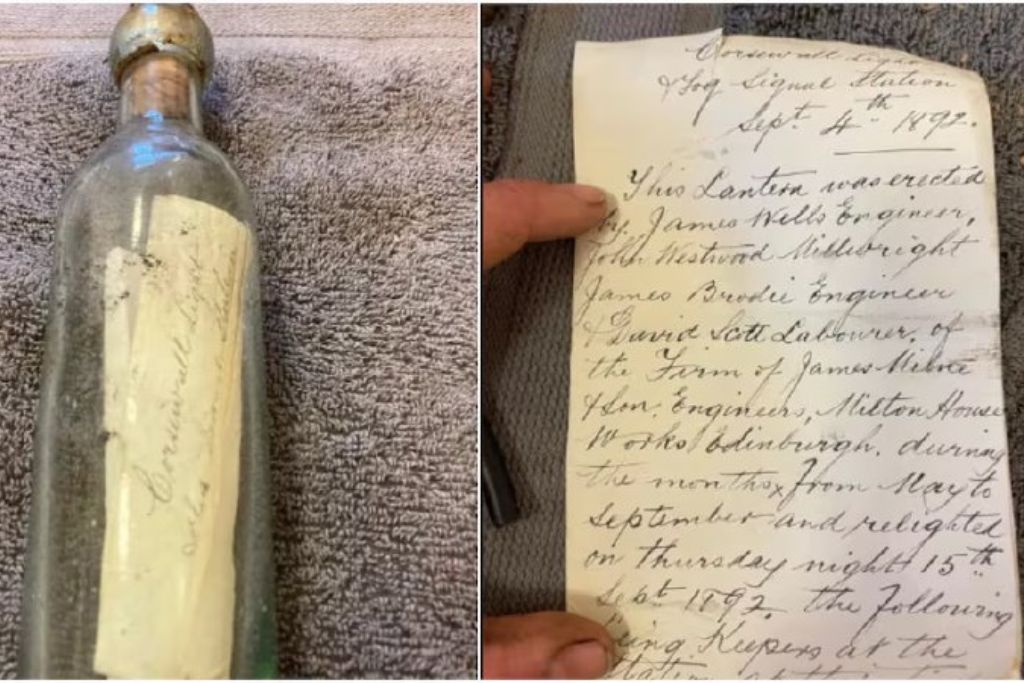 Corsewall Light
Corsewall Light
& Fog Signal Station
Sept 4th 1892.
This Lantern was erected
by James Wells Engineer,
John Westwood Millwright
James Brodie Engineer
& David Scott Labourer, of
the Firm of James Milne
& Son. Engineers, Milton House
Works Edinburgh. during
the months from May to
September and relighted
on thursday night 15th
Sept 1892. the following
being Keepers at the
Station at this